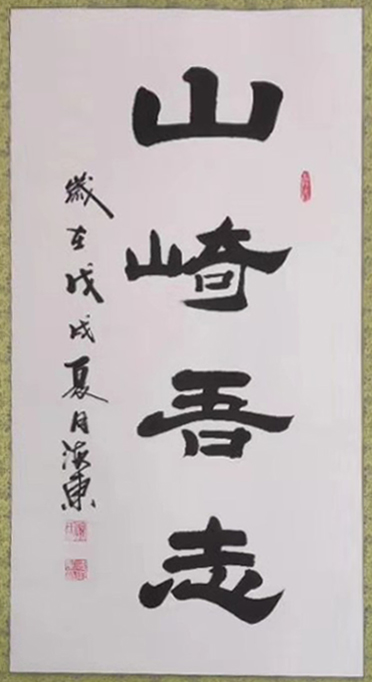 山崎吾志
歲在戊戌夏月海東